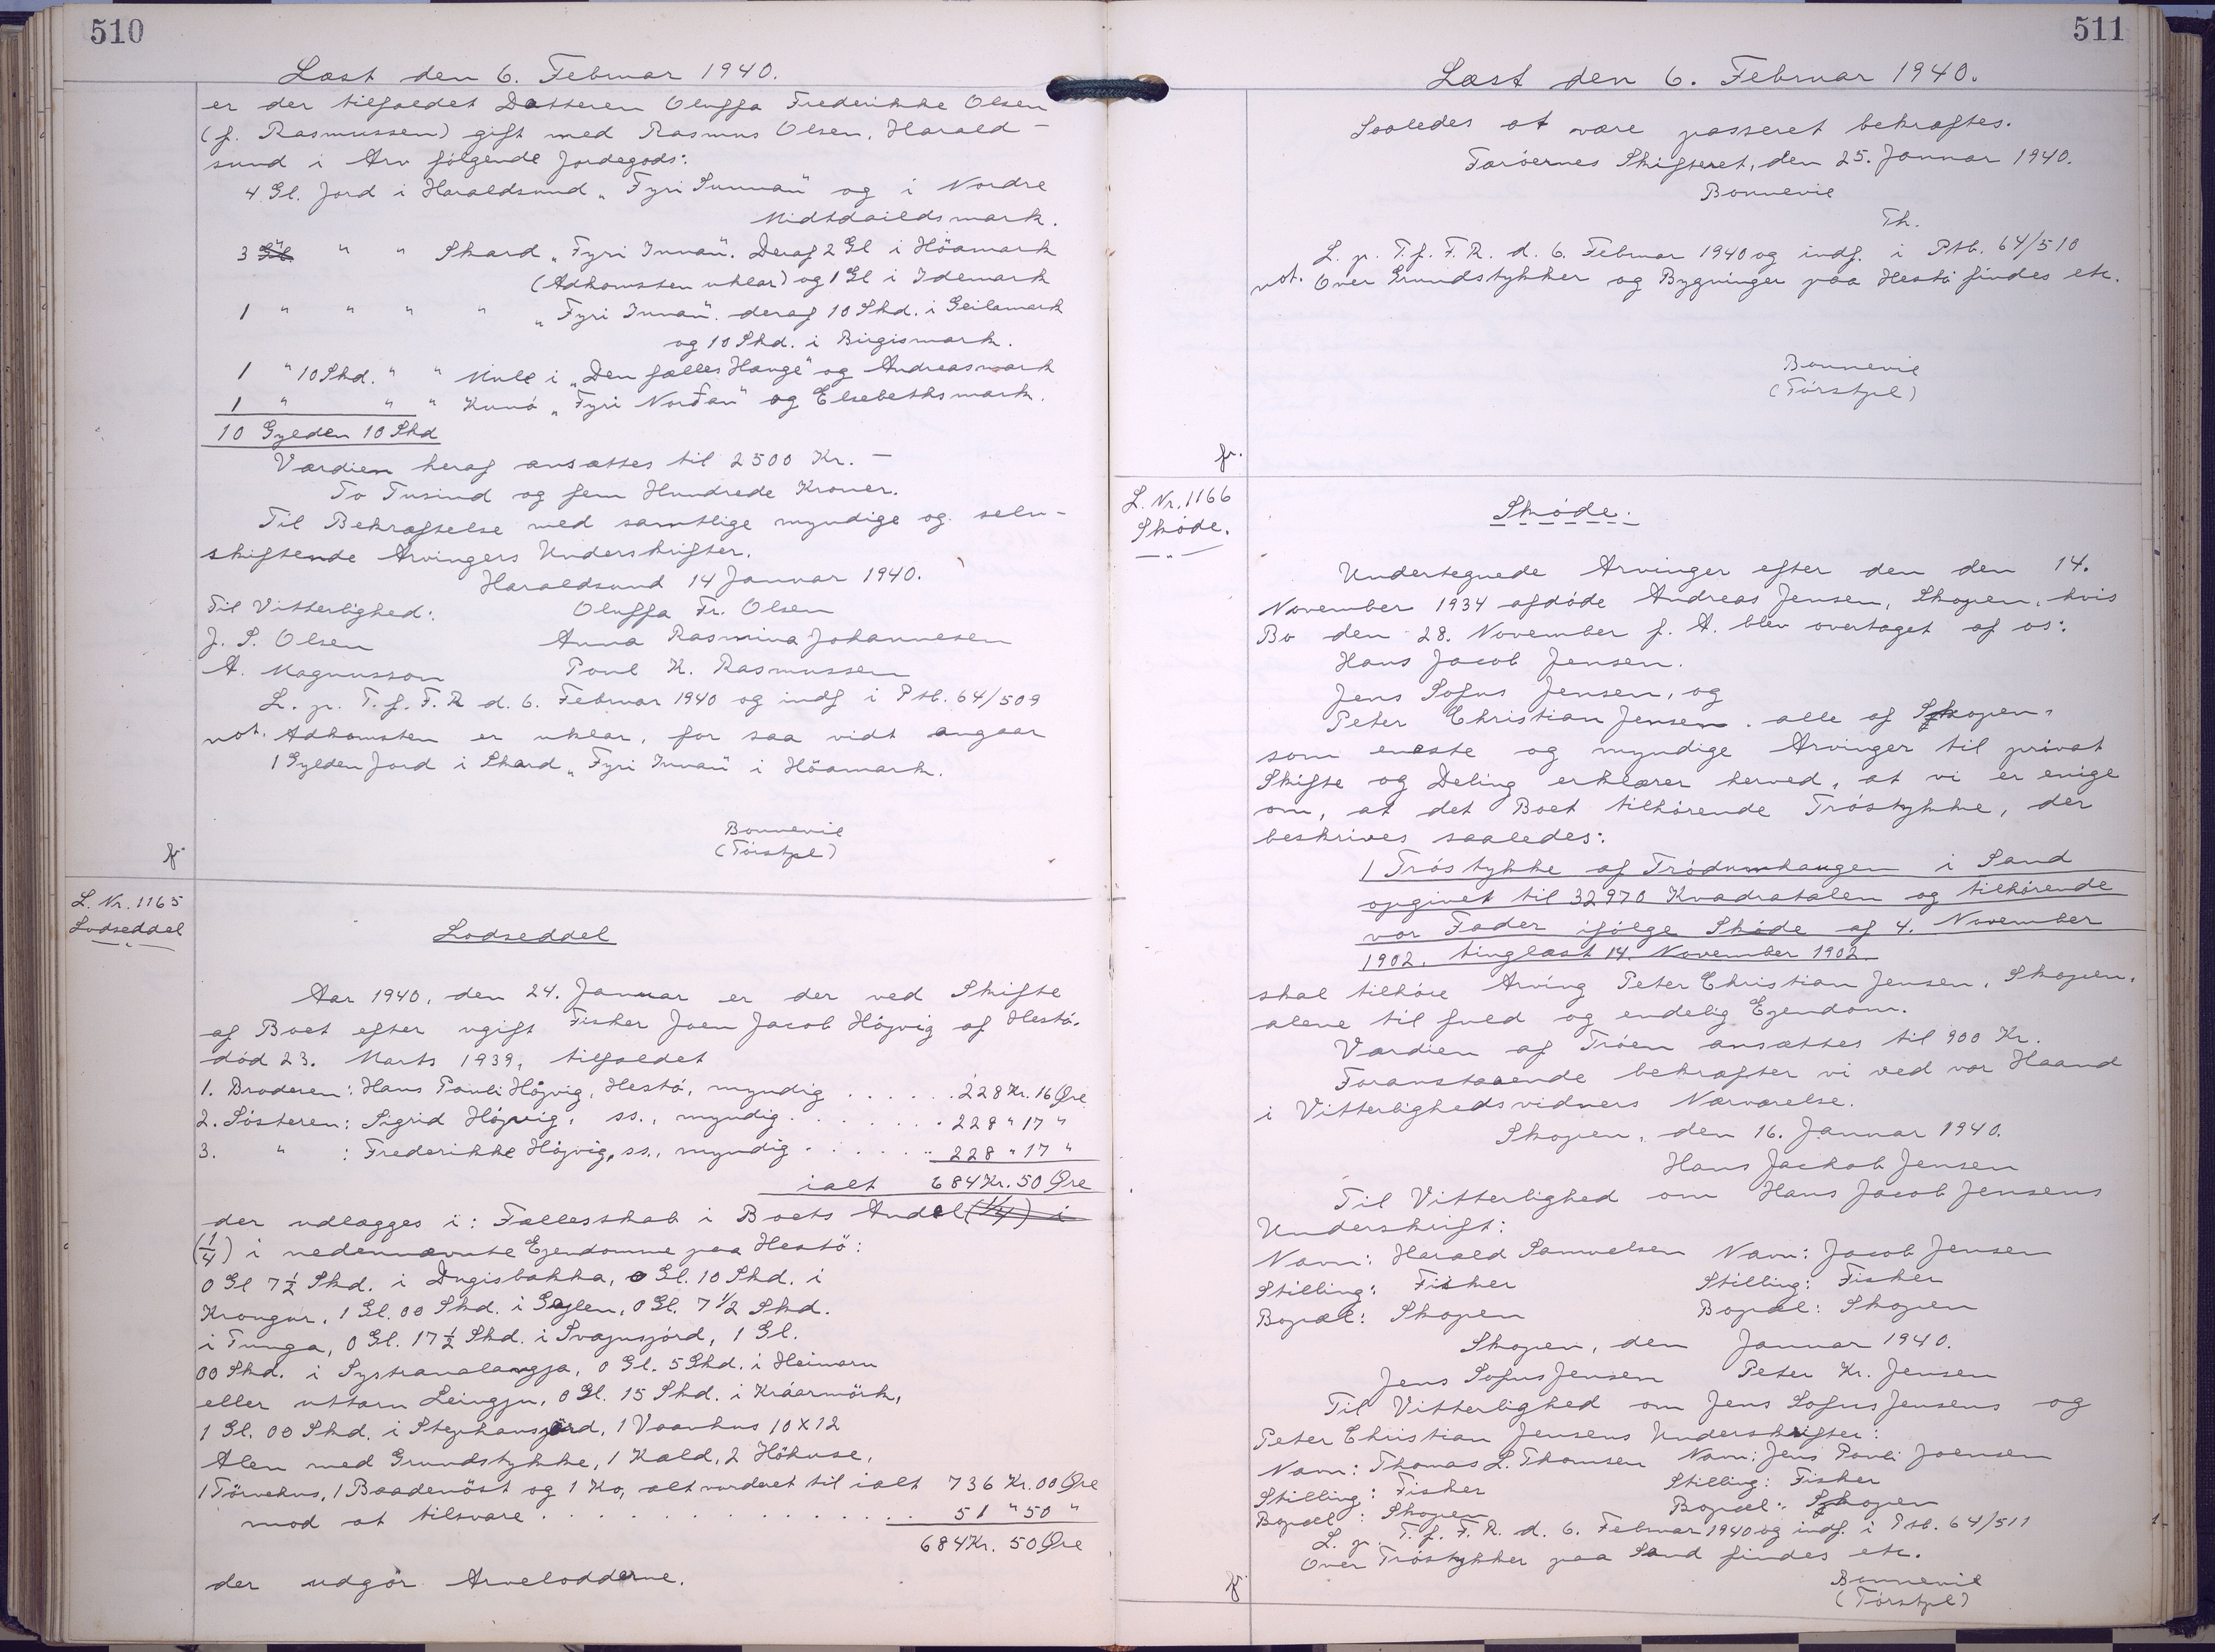 510
Læst den 6. Februar 1940.
er der tilfaldet Datteren Oluffa Frederikke Olsen
(f. Rasmussen) gift med Rasmus Olsen, Harald-
sund i Arv følgende Jordegods:
4 Gl. Jord i Haraldsund „Fyri Sunnan" og i Nordre
Midtdaildsmark.
3 " " Skard „Fyri Innan". Deraf 2 Gl i Höamark
(Adkomsten uklar) og 1 Gl i Idemark
1 " " " " „Fyri Innan". deraf 10 Skd. i Geilamark
og 10 Skd. i Birgismark.
1 " 10 Skd. " " Mule i „Den fælles Hauge" og Andreasmark
1 " " " Kunö „Fyri Norðan" og Elsebethsmark.
10 Gylden 10 Skd
Værdien heraf ansættes til 2500 Kr. —
To Tusind og fem Hundrede Kroner.
Til Bekræftelse med samtlige myndige og selv-
skiftende Arvingers Underskrifter.
Haraldsund 14 Januar 1940.
Til Vitterlighed: Oluffa Fr. Olsen
J. S. Olsen Anna Rasmina Johannesen
A. Magnusson Poul K. Rasmussen
L. p. T. f. F. R d. 6. Februar 1940 og indf i Ptb. 64/509
not. Adkomsten er uklar, for saa vidt angaar
1 Gylden Jord i Skard „Fyri Innan" i Höamark.
Bonnevie
(Tórstpl)
L. Nr. 1165
Lodseddel
Lodseddel
Aar 1940, den 24. Januar er der ved Skifte
af Boet efter ugift Fisker Joen Jacob Höjvig af Hestö.
död 23. Marts 1939, tilfaldet
1. Broderen: Hans Pauli Höjvig, Hestö, myndig . . . . . . 228 Kr. 16 Øre
2. Sösteren: Sigrid Höjvig, ss., myndig . . . . . . . 228 " 17 "
3. " : Frederikke Höjvig, ss., myndig . . . . . . 228 " 17 "
ialt 684 Kr. 50 Øre
der udlægges i: Fællesskab i Boets Andel (1/4) i
(1/4) i nedennævnte Ejendomme paa Hestö:
0 Gl 7 1/2 Skd. i Dugisbakka, 0 Gl. 10 Skd. i
Krongur, 1 Gl. 00 Skd. i Gøjlen, 0 Gl. 7 1/2 Skd.
i Tunga, 0 Gl. 17 1/2 Skd. i Svajnsjörd, 1 Gl.
00 Skd. i Systranalangja, 0 Gl. 5 Skd. i Heimaru
eller uttaru Leingju, 0 Gl. 15 Skd. i Kráarmörk,
1 Gl. 00 Skd. i Stephansjörd, 1 Vaanhus 10 X 12
Alen med Grundstykke, 1 Kald, 2 Höhuse,
1 Törvehus, 1 Baadenöst og 1 Ko, alt vurderet til ialt 736 Kr. 00 Øre
mod at tilsvare . . . . . . . . . . . . . . 51 " 50 "
684 Kr. 50 Øre
der udgör Arvelodderne.
511
Læst den 6. Februar 1940.
Saaledes at være passeret bekræftes.
Færöernes Skifteret, den 25. Januar 1940.
Bonnevie
Th.
L. p. T. f. F. R. d. 6. Februar 1940 og indf. i Ptb. 64/510
not. Over Grundstykker og Bygninger paa Hestö findes etc.
Bonnevie
(Tórstpl)
fr.
L. Nr. 1166
Sköde.
Sköde.
Undertegnede Arvinger efter den den 14.
November 1934 afdöde Andreas Jensen, Skopen, hvis
Bo den 28. November f. A. blev overtaget af os:
Hans Jacob Jensen.
Jens Sofus Jensen, og
Peter Christian Jensen. alle af Skopen,
som eneste og myndige Arvinger til privat
Skifte og Deling erklærer herved, at vi er enige
om, at det Boet tilhörende Tröstykke, der
beskrives saaledes:
1 Tröstykke af Trödumhaugen i Sand
opgivet til 32970 Kvadratalen og tilhörende
vor Fader ifölge Sköde af 4. November
1902, tinglæst 14. November 1902
skal tilhöre Arving Peter Christian Jensen, Skopen,
alene til fuld og endelig Ejendom.
Værdien af Tröen ansættes til 900 Kr.
Foranstaaende bekræfter vi ved vor Haand
i Vitterlighedsvidners Nærværelse.
Skopen, den 16. Januar 1940.
Hans Jackob Jensen
Til Vitterlighed om Hans Jacob Jensens
Underskrift:
Navn: Harald Samuelsen Navn: Jacob Jensen
Stilling: Fisker Stilling: Fisker
Bopæl: Skopen Bopæl: Skopen
Skopen, den Januar 1940.
Jens Sofus Jensen Peter Kr. Jensen
Til Vitterlighed om Jens Sofus Jensens og
Peter Christian Jensens Underskrifter:
Navn: Thomas L. Thomsen Navn: Jens Pauli Joensen
Stilling: Fisker Stilling: Fisker
Bopæl: Skopen Bopæl: Skopen
L. p. T. f. F. R. d. 6. Februar 1940 og indf. i Ptb. 64/511
Over Tröstykker paa Sand findes etc.
Bonnevie
(Tórstpl)